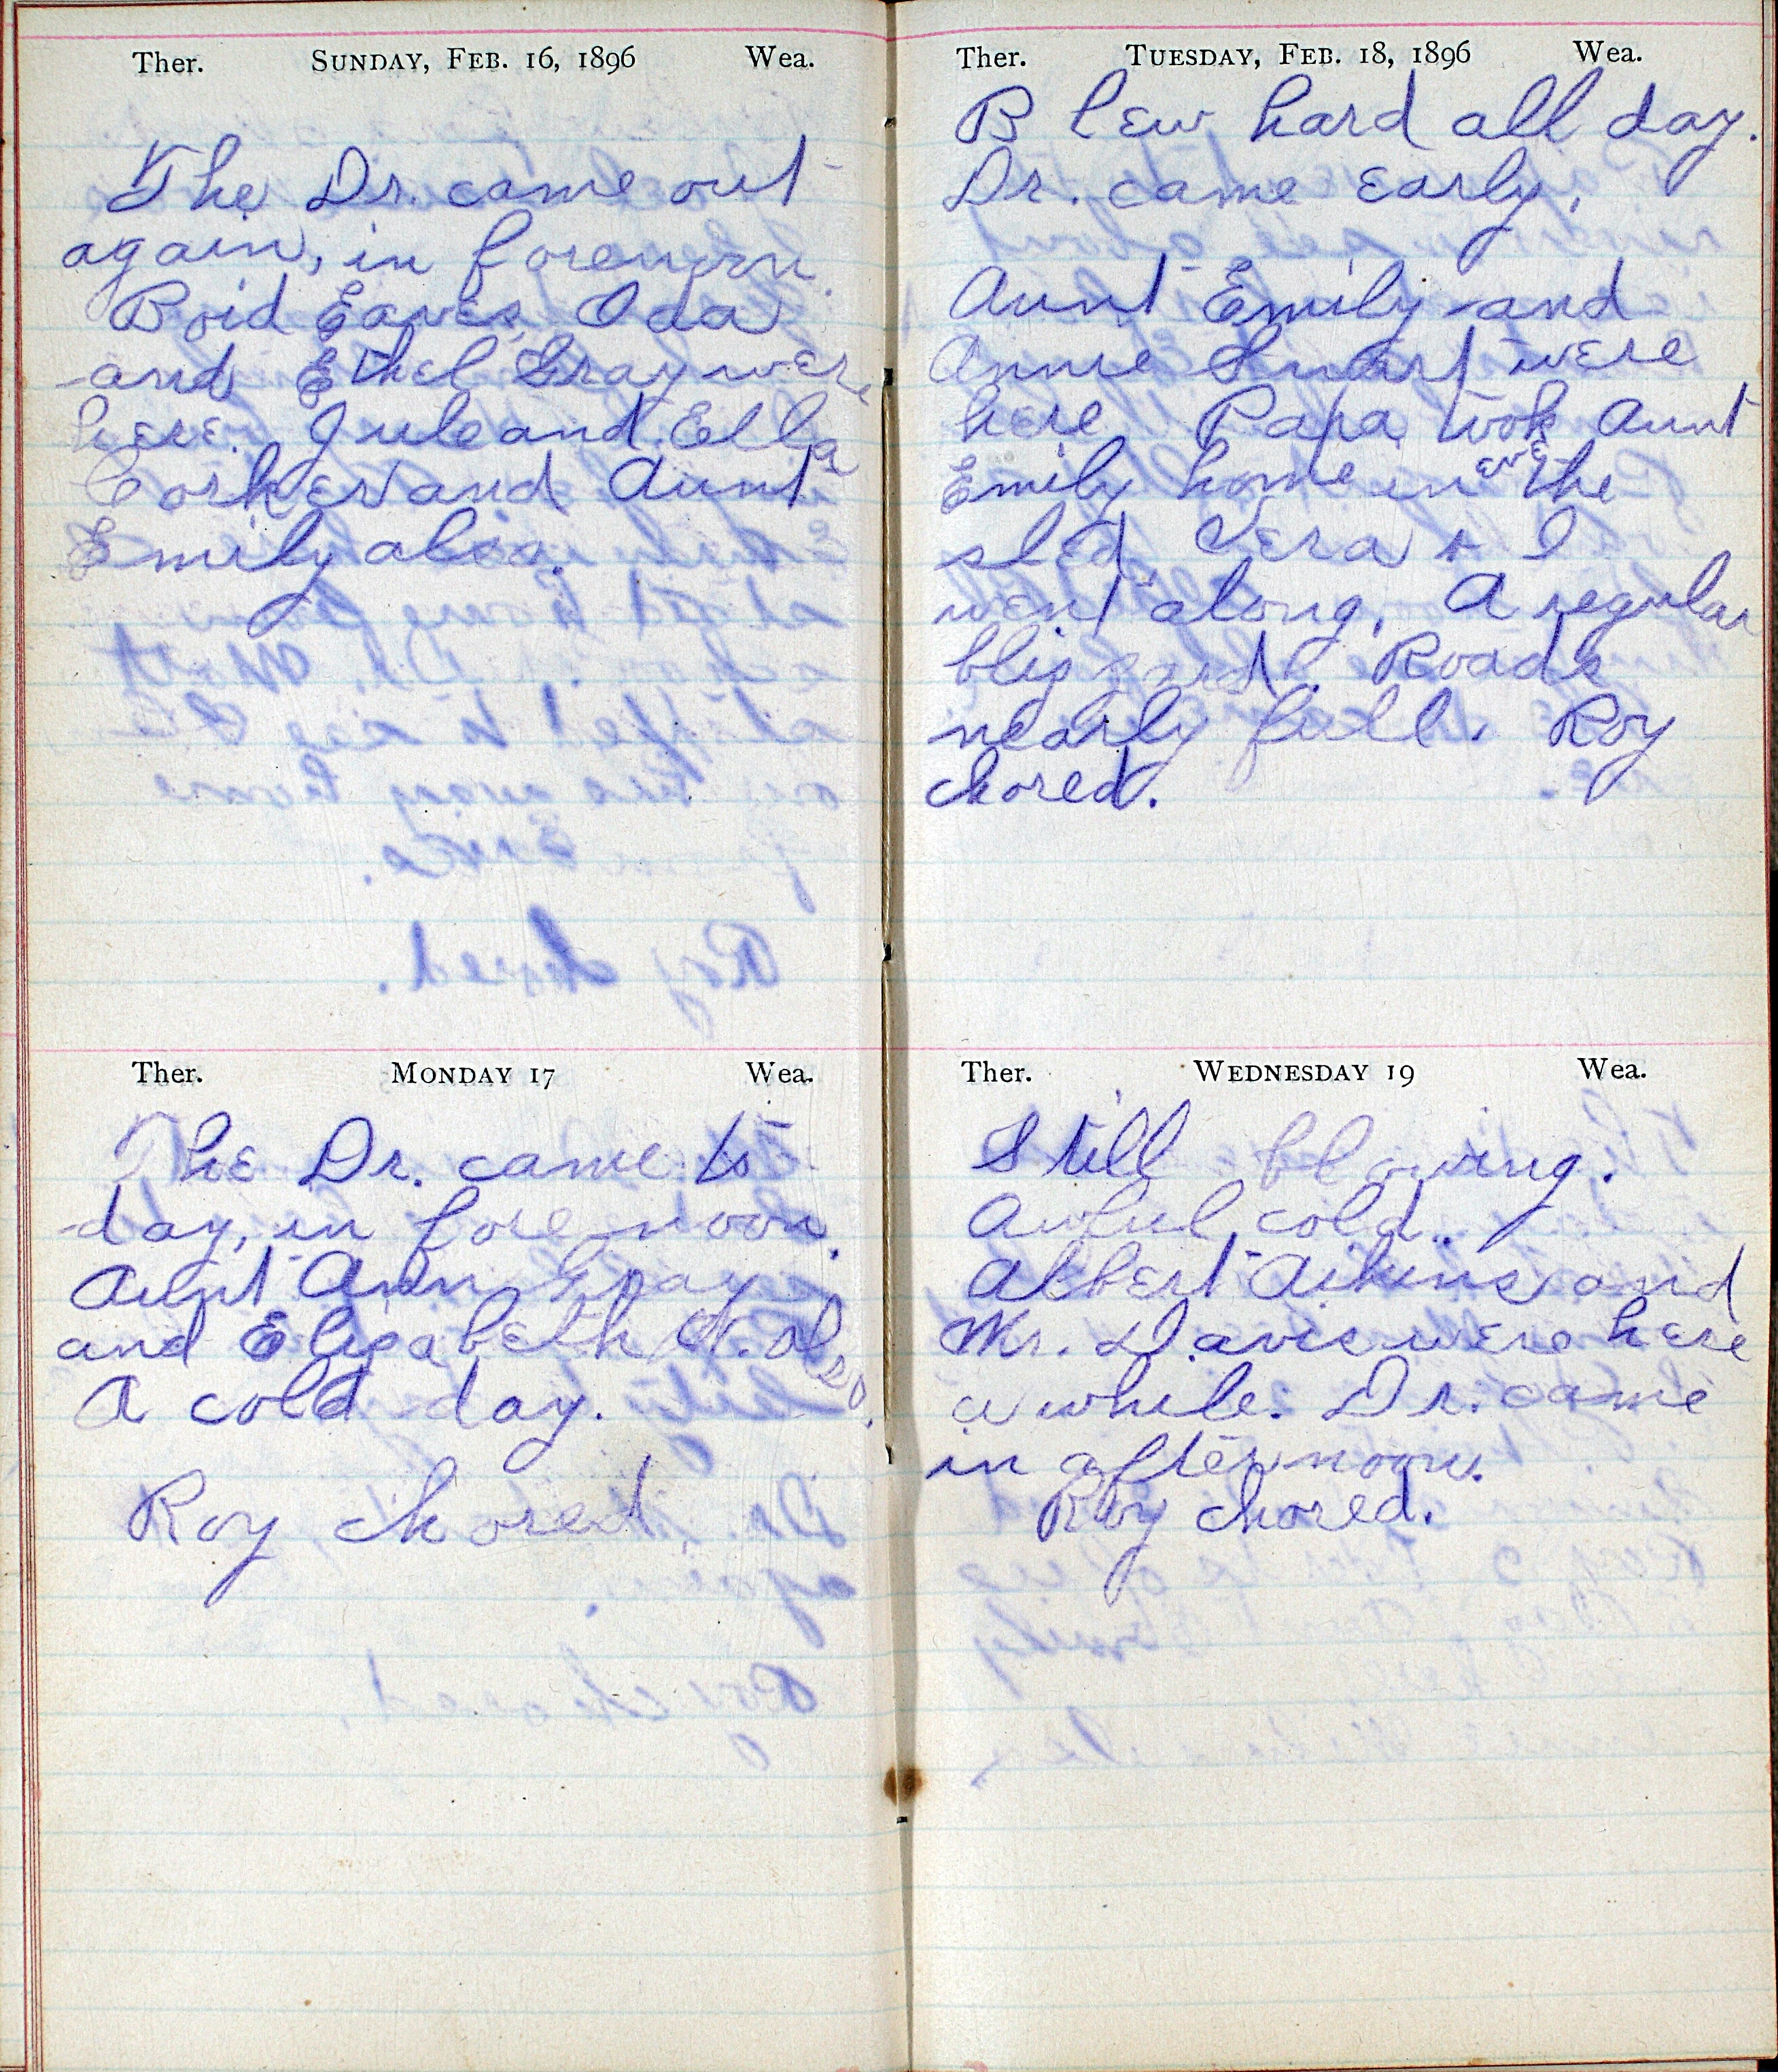 Ther. SUNDAY, FEB. 16, 1896 Wea.
The Dr. came out
again, in forenoon.
Boid Eaves, Oda
and Ethel Gray were
here. Jule and Ella
Corker and Aunt
Emily also.
Ther. MONDAY 17 Wea.
The Dr. came to
day, in forenoon.
Aunt Ann Gray
and Elizabeth N. also.
A cold day.
Roy chored.
Ther. TUESDAY, FEB. 18, 1896 Wea.
Blew hard all day.
Dr. came early.
Aunt Emily and
Annie Smart were
here Papa took Aunt
Emily home in eve the
sled Vera & I
went along. A regular
blizzard. Roads
nearly full. Roy
chored.
Ther. WEDNESDAY 19 Wea.
Still blowing.
Awful cold.
Albert Aikins and
Mr. Davis were here
a while. Dr. came
in afternoon.
Roy chored.